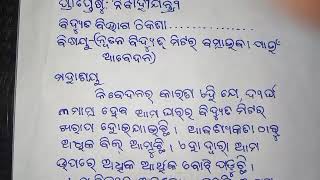 ପ୍ରାପ୍ତେଷୁ: ନିର୍ବାହୀଯନ୍ତ୍ରୀ
ବିଦ୍ୟୁତ ବିଭାଗ ଠିକଣା..............
ବିଷୟ-(ନୂତନ ବିଦ୍ୟୁତ୍ ମିଟର ବସାଇବା ପାଇଁ
ଆବେଦନ)
ମହାଶୟ
ନିବେଦନର କାରଣ ଏହି ଯେ, ଦୀର୍ଘ
୩ ମାସ ହେବ ଆମ ଘରର ବିଦ୍ୟୁତ ମିଟର
ଖରାପ ହୋଇଯାଇଛି । ଆବଶ୍ୟକତା ଠାରୁ
ଅଧିକ ବିଲ୍ ଆସୁଛି । ଏହା ଦ୍ୱାରା ଆମ
ଉପରେ ଅଧିକ ଆର୍ଥିକ ବୋଝ ପଡୁଛି ।